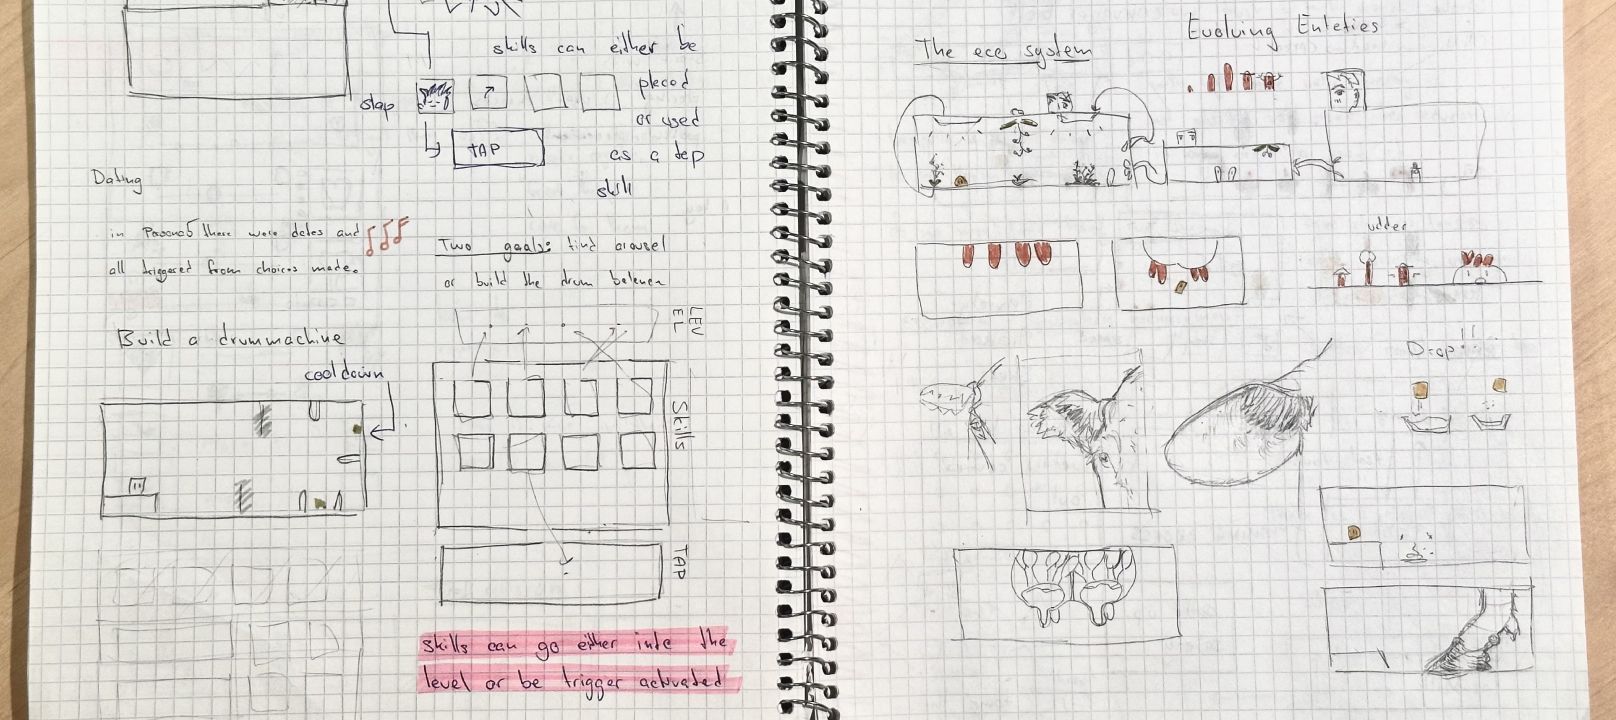 skills can either be
placed
or used
as a tap
skill
slap
TAP
Dating
in there were dates and
all triggered from choices made.
Two goals: find
or build the drum
Build a drummachine
cooldown
LEV
EL
Skills
TAP
skills can go either into the
level or be trigger activated
The eco system
Evolving Enteties
udder
Drop!!